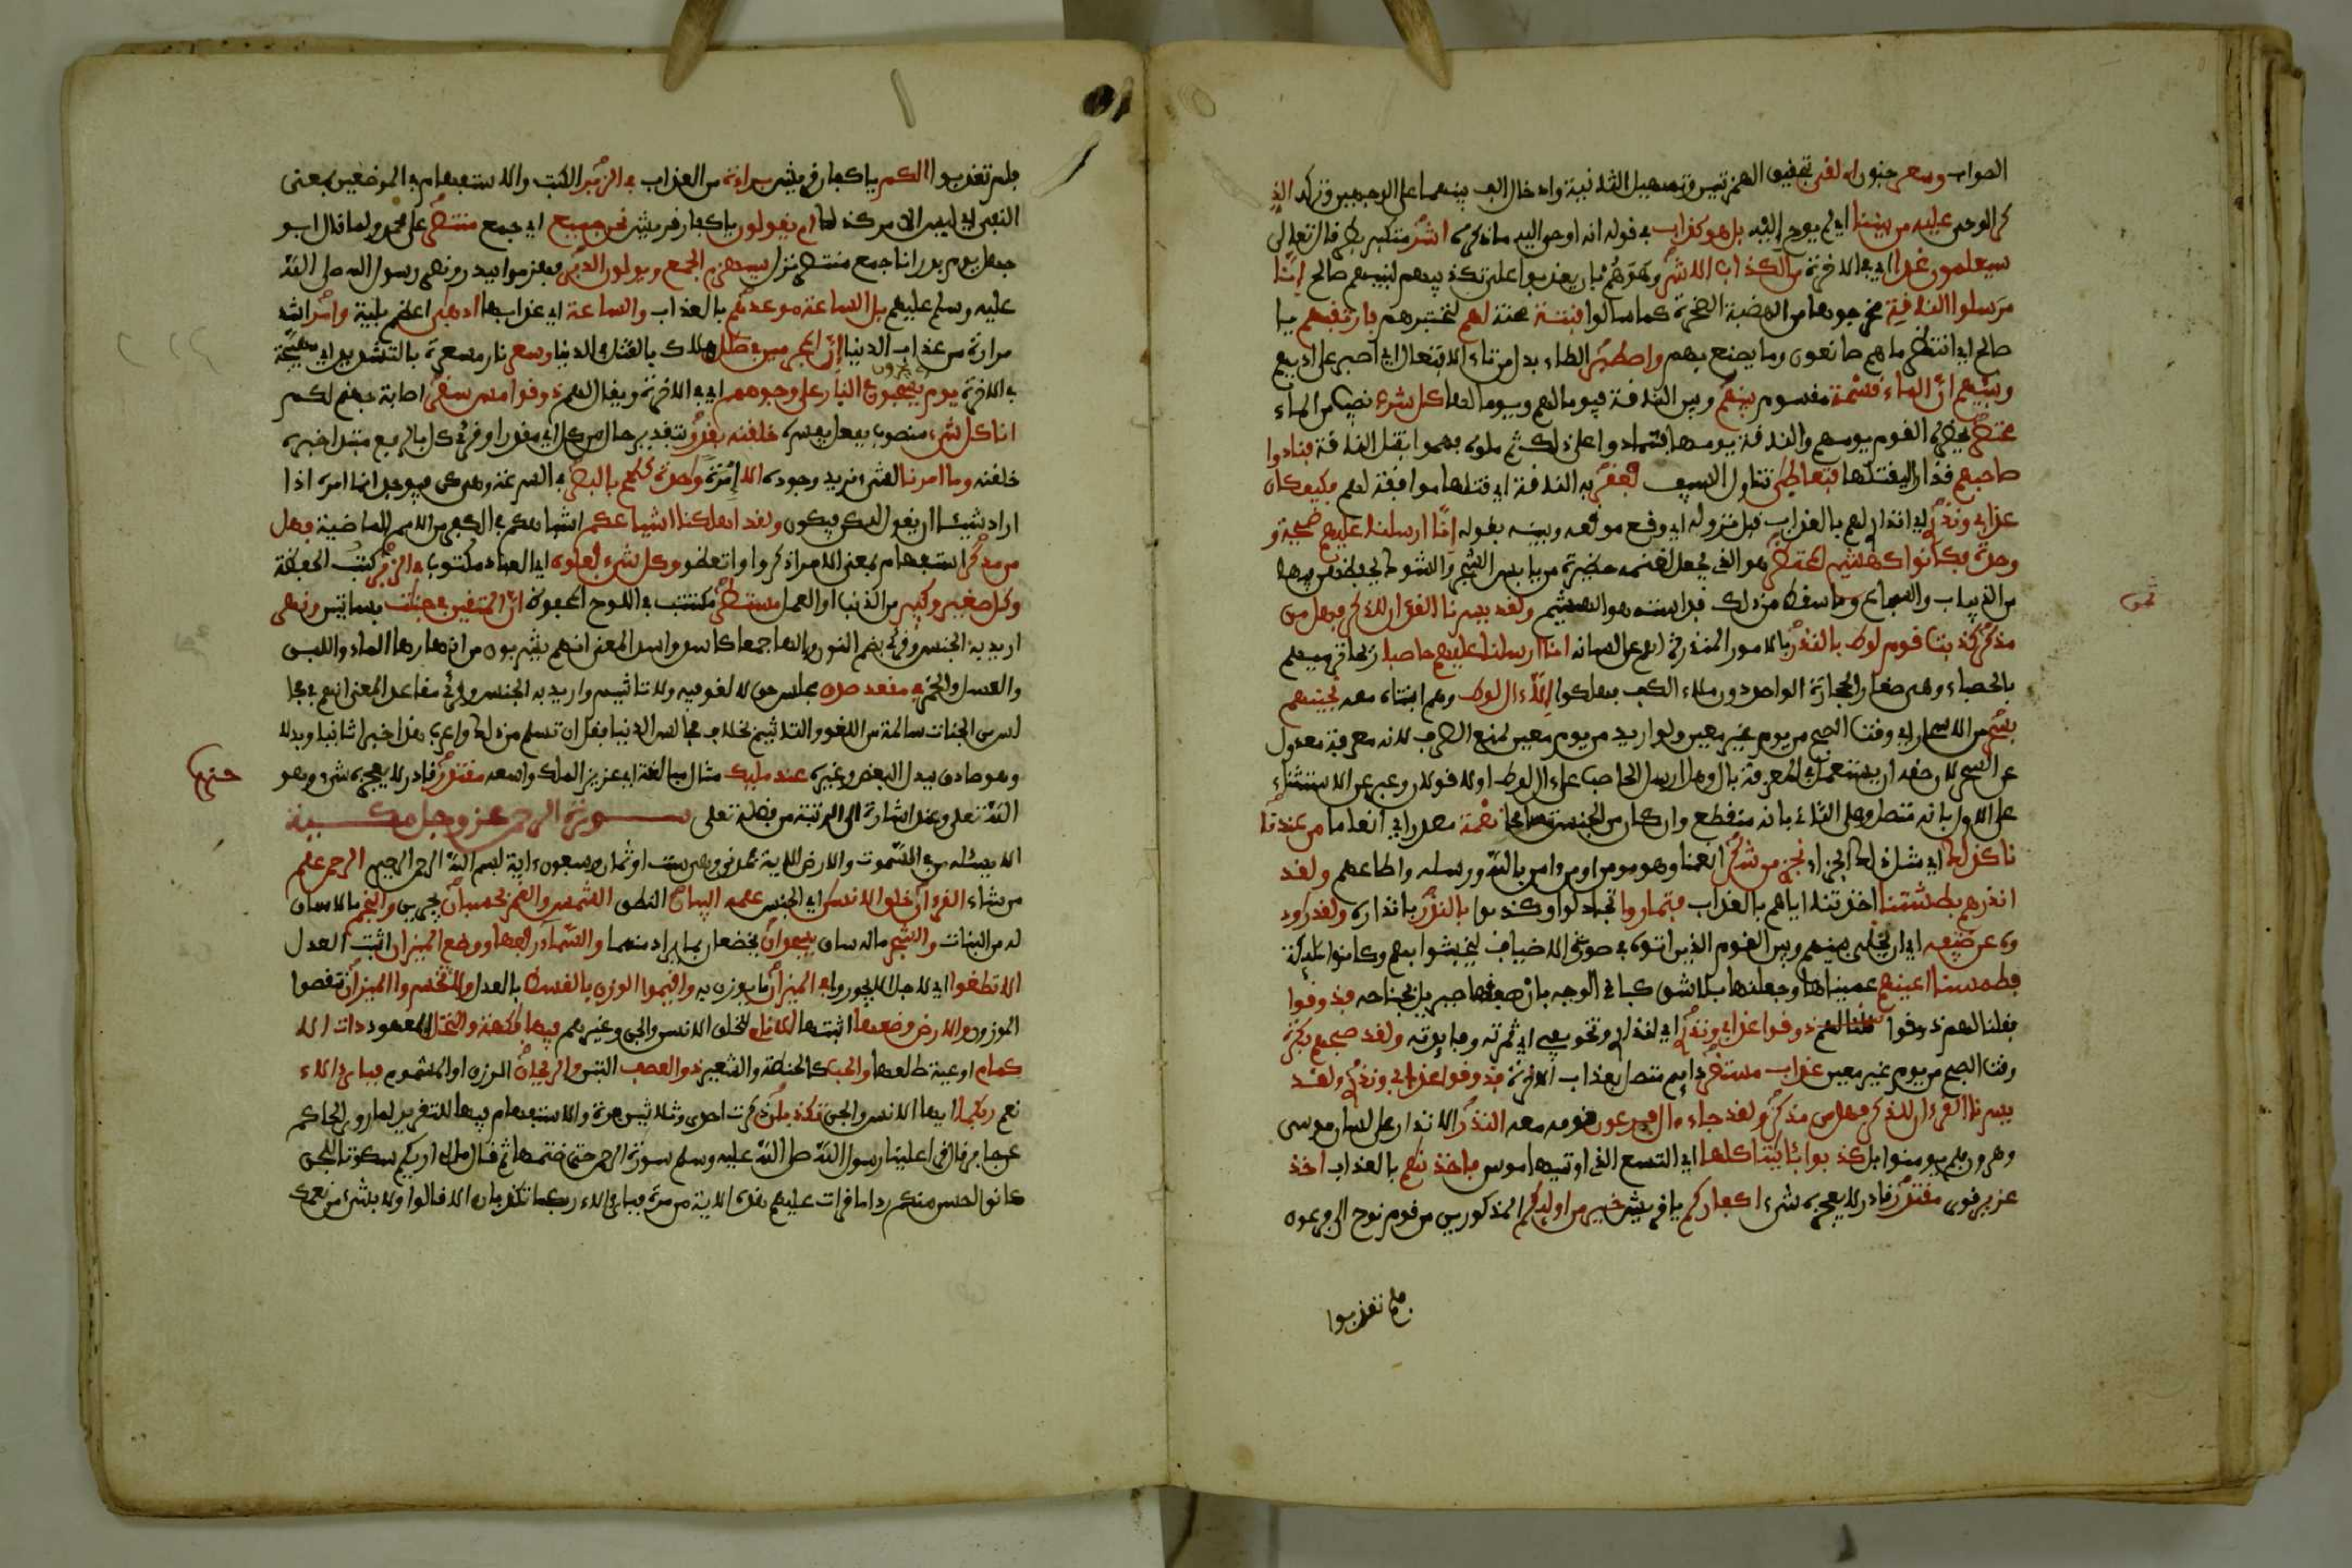 الصواب وسعر جنون أءلفي بتحقيق الهمزتين وتسهيل الثانية وادخال الف بينهما على الوجهين وتركه الذ
كر الوحي عليه من بيننا اي لم يوح إليه بل هو كذاب في قوله انه اوحي اليه ما ذكره اشر متكبر بطر قال تعلى
سيعلمون غدا اي في الاخرة من الكذاب الاشر وهو هم بان يعذبوا على تكذيبهم لنبيهم صالح إنا
مرسلوا الناقة مخرجوها من الهضبة الصخرة كما سالوا فتنة محنة لهم لنختبرهم فارتقبهم يا
صالح اي انتظر ما هم صانعون وما يصنع بهم واصطبر الطاء بدل من تاء الافتعال اي اصبر على اذيهم
ونبيهم ان الماء قسمة مقسوم بينهم وبين الناقة فيوم لهم ويوم لها كل شرب نصيب من الماء
محتضر يحضره القوم يومهم والناقة يومها فتمادوا على ذلك ثم ملوه فهموا بقتل الناقة فنادوا
صاحبهم قدارا ليقتلها فتعاطى تناول السيف فعقر به الناقة اي قتلها موافقة لهم فكيف كان
عذابي ونذر اي انذاري لهم بالعذاب قبل نزوله اي وقع موقعه وبينه بقوله إنا ارسلنا عليهم صيحة و
احدة فكانوا كهشيم المحتظر هو الذي يجعل لغنمه حظيرة من يابس الشجر والشوك يحفظهن فيها
من الذياب والسباع وما سقط من ذلك فداسته هو الهشيم ولقد يسرنا القرءان للذكر فهل من
مدكر كذبت قوم لوط بالنذر بالامور المنذرة لهم على لسانه انا ارسلنا عليهم حاصبا ريحا ترميهم
بالحصباء وهي صغار الحجارة الواحد دون ملء الكف فهلكوا إلا ءال لوط وهم ابنتاه معه نجينهم
بسحر من الاسحار اي وقت الصبح من يوم غير معين ولو اريد من يوم معين لمنع الصرف لانه معرفة معدول
عن السحر لان حقه ان يستعمل في المعرفة بال وهل ارسل الحاصب على ءال لوط اولا قولان وعبر عن الاستثناء
على الاول بانه متصل وعلى الثاني بانه منقطع وان كان من الجنس نعمة مصدر اي انعاما من عندنا
كذلك اي مثل ذلك الجزاء نجزي من شكر انعمنا وهو مومن او من ءامن بالله ورسله واطاعهم ولقد
انذرهم بطشتنا اخذتنا اياهم بالعذاب فتماروا تجادلوا وكذبوا بالنذر بانذاره ولقد راود
وه عن ضيفه اي ان يخلي بينهم وبين القوم الذين اتوه في صورة الاضياف ليخبثوا بهم وكانوا ملائكة
فطمسنا اعينهم عميناها وجعلنها بلا شق كباقي الوجه بان صفقها جبريل بجناحه فذوقوا
فقلنا لهم ذوقوا عذابي ونذر اي انذاري وتخويفي اي ثمرته وفايدته ولقد صبحهم بكرة
وقت الصبح من يوم غير معين عذاب مستقر دايم متصل بعذاب الاخرة فذوقوا عذابي ونذر ولقد
يسرنا القرءان للذكر فهل من مدكر ولقد جاء ءال فرعون قومه معه النذر الانذار على لسان موسى
وهرون فلم يومنوا بل كذبوا بئايتنا كلها اي التسع التي اوتيها موسى فاخذنهم بالعذاب اخذ
عزيز قوي مقتدر قادر لا يعجزه شيء اكفاركم يا قريش خير من اوليكم المذكورين من قوم نوح الى فرعون
فلم تعذبوا
فلم تعذبوا ام لكم يا كفار قريش براءة من العذاب في الزبر الكتب والاستفهام في الموضعين بمعنى
النفي اي ليس الامر كذلك ام يقولون يا كفار قريش نحن جميع اي جمع منتصر على محمد ولما قال ابو
جهل يوم بدر انا جمع منتصر نزل سيهزم الجمع ويولون الدبر فهزموا ببدر ونصر رسول الله صلى الله
عليه وسلم عليهم بل الساعة موعدهم بالعذاب والساعة اي عذابها ادهى اعظم بلية وامر اشد
مرارة من عذاب الدنيا إن المجرمين في ضلل هلاك بالقتل في الدنيا وسعر نار مسعرة بالتشديد اي مهيجة
في الاخرة يوم يسحبون في النار على وجوههم اي في الاخرة ويقال لهم ذوقوا مس سقر اصابة جهنم لكم
انا كل شيء منصوب بفعل يفسره خلقنه بقدر بتقدير حال من كل اي مقدرا وقرئ كل بالرفع مبتدا خبره
خلقنه وما امرنا لشيء نريد وجوده الا إمرة واحدة كلمح بالبصر في السرعة وهي كن فيوجد انما امره اذا
اراد شيئا ان يقول له كن فيكون ولقد اهلكنا اشياعكم اشباهكم في الكفر من الامم الماضية فهل
من مدكر استفهام بمعنى الامر اذكروا واتعظوا وكل شيء فعلوه اي العباد مكتوب في الزبر كتب الحفظة
وكل صغير وكبير من الذنب او العمل مستطر مكتتب في اللوح المحفوظ ان المتقين في جنات بساتين ونهر
اريد به الجنس وقرئ بضم النون والهاء جمعا كاسد واسد المعنى انهم يشربون من انهارها الماء واللبن
والعسل والخمر في مقعد صدق مجلس حق لا لغو فيه ولا تاثيم واريد به الجنس وقرئ مقاعد المعنى انهم في مجا
لس من الجنات سالمة من اللغو والتاثيم بخلاف مجالس الدنيا فقل ان تسلم من ذلك واعرب هذا خبرا ثانيا وبدلا
وهو صادق ببدل البعض وغيره عند مليك مثال مبالغة اي عزيز الملك واسعه مقتدر قادر لا يعجزه شيء وهو
حزب
الله تعلى وعند اشارة الى الرتبة من فضله تعلى سورة الرحمن عز وجل مكية
الا يسئله من في السموت والارض الاية فمدني وهي ست او ثمان وسبعون ءاية بسم الله الرحمن الرحيم الرحمن علم
من شاء القرءان خلق الانسن اي الجنس علمه البيان النطق الشمس والقمر بحسبان يجرين والنجم ما لا ساق
له من النبات والشجر ما له ساق يسجدان يخضعان بما يراد منهما والسماء رفعها ووضع الميزان اثبت العدل
الا تطغوا اي لاجل الا تجوروا في الميزان ما يوزن به واقيموا الوزن بالقسط بالعدل ولا تخسروا الميزان تنقصوا
الموزون والارض وضعها اثبتها للانام للخلق الانس والجن وغيرهم فيها فاكهة والنخل المعهود ذات الا
كمام اوعية طلعها والحب كالحنطة والشعير ذو العصف التبن والريحان الورق او المشموم فباي ءالاء
نعم ربكما ايها الانس والجن تكذبان ذكرت احدى وثلاثين مرة والاستفهام فيها للتقرير لما روى الحاكم
عن جابر قال قرا علينا رسول الله صلى الله عليه وسلم سورة الرحمن حتى ختمها ثم قال ما لي اراكم سكوتا للجن
كانوا احسن منكم ردا ما قرات عليهم هذه الاية من مرة فباي ءالاء ربكما تكذبان الا قالوا ولا بشيء من نعمك